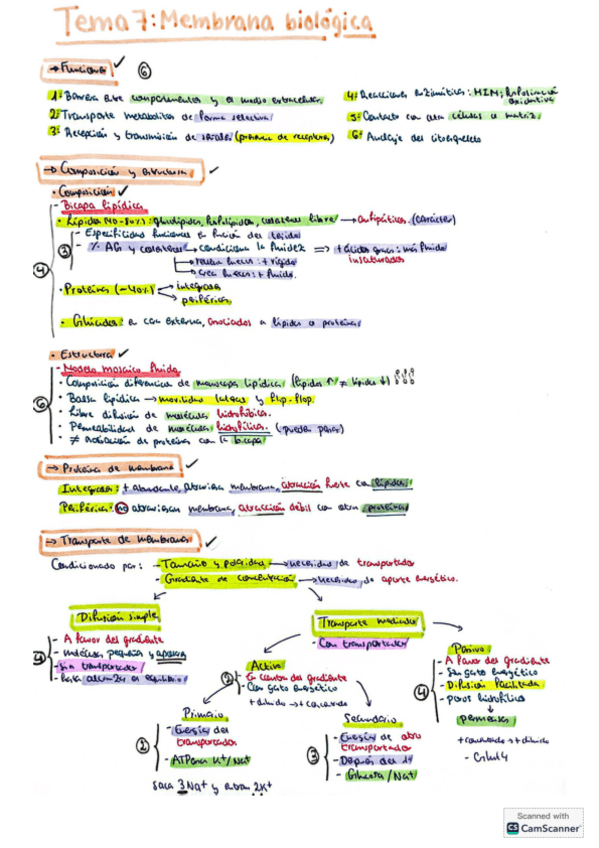 Tema 7: Membrana biológica
→ Funciones ✓ ⑥
1: Barrera entre compartimentos y el medio extracelular.
2: Transporte metabolitos de forma selectiva.
3: Recepción y transmisión de señales (proteínas de receptores)
4: Reacciones enzimáticas: MIM; fosforilación oxidativa
5: Contacto con otra células o matriz.
6: Anclaje del citoesqueleto
→ Composición y estructura ✓
• Composición ✓
- Bicapa lipídica
• Lípidos (40-80%): glucolípidos, fosfolípidos, colesterol libre → anfipáticos. (carácter)
③ - Especificidad funciones en función del tejido
- % AG y colesterol → condiciona la fluidez ⇒ + ácidos grasos: más fluida
insaturados
→ rellena huecos: + rígida
→ crea huecos: + fluida.
④
• Proteínas (~40%) → integrales
→ periféricas.
• Glúcidos: en cara externa, asociados a lípidos o proteínas
• Estructura ✓
- Modelo mosaico fluido
• Composición diferencial de monocapa lipídica (lípidos ↑ ≠ lípidos ↓)
• Balsa lipídica → movilidad lateral y flip-flop.
• Libre difusión de moléculas hidrofóbicas.
• Permeabilidad de moléculas hidrofílicas. (pueden pasar)
• ≠ asociación de proteínas con la bicapa
⑥
→ Proteínas de membrana ✓
Integrales: + abundante, atraviesa membrana, atracción fuerte con lípidos.
Periférica: no atraviesan membrana, atracción débil con otras proteínas
→ Transporte de membranas ✓
Condicionado por: - Tamaño y polaridad → necesidad de transportador
- Gradiente de concentración → necesidad de aporte energético.
Difusión simple
④ - A favor del gradiente
- moléculas pequeñas y apolares
- sin transportador
- hasta alcanzar el equilibrio
Transporte mediado
- Con transportador
Activo
③ - En contra del gradiente
- Con gasto energético
+ diluido → + concentrado
Pasivo
④ - A favor del gradiente
- Sin gasto energético
- Difusión facilitada
- poros hidrofílicos
↓
permeasas
+ concentrado → + diluido
- Glut4
Primario
② - Energía del transportador
- ATPasa K+/Na+
saca 3Na+ y entran 2K+
Secundario
③ - Energía de otro transportador
- Después del 1º
- Glucosa/Na+
Scanned with
CS CamScanner